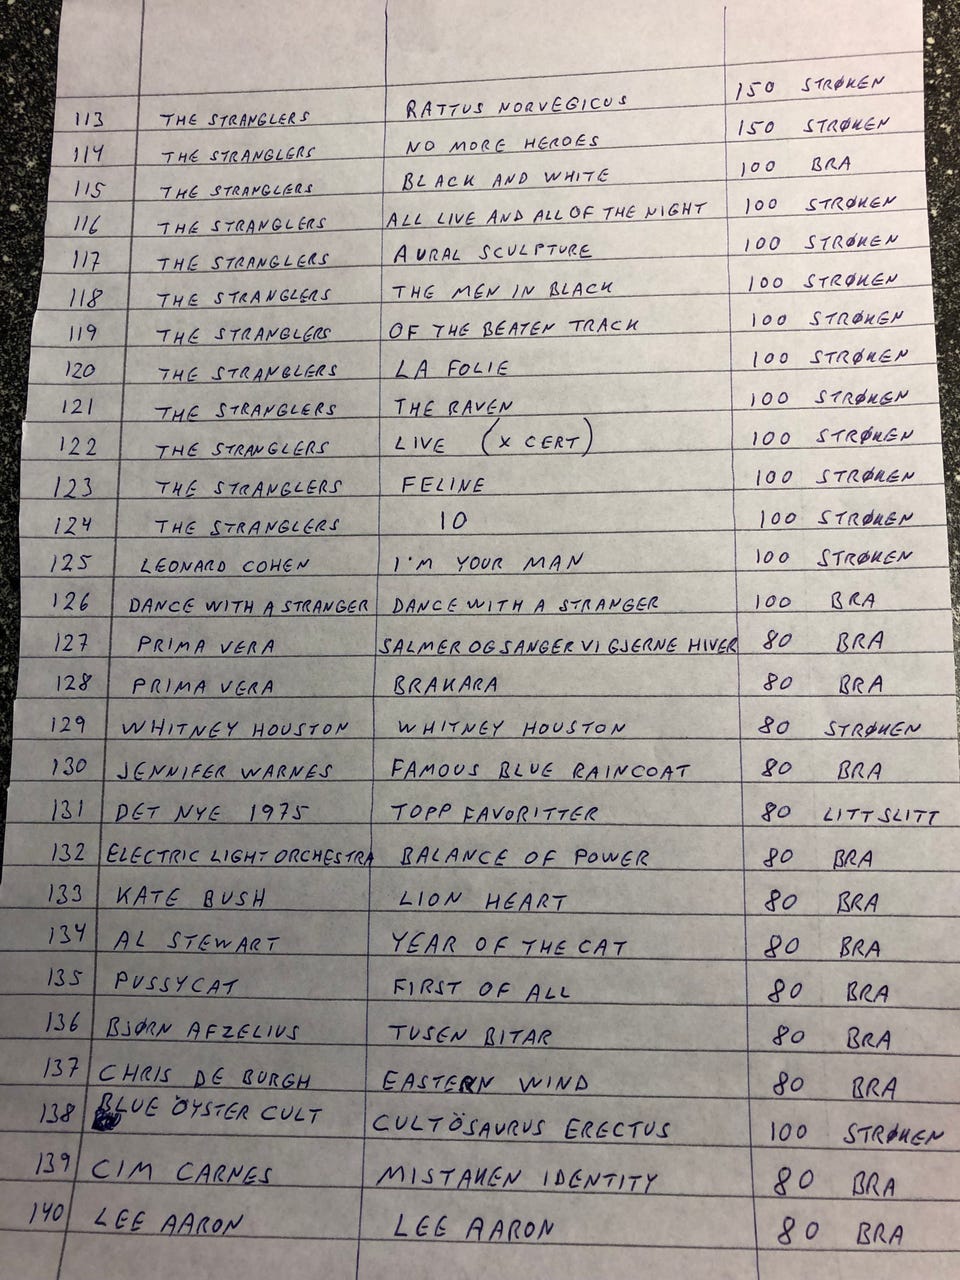 113 THE STRANGLERS RATTUS NORVEGICUS 150 STRØKEN
114 THE STRANGLERS NO MORE HEROES 150 STRØKEN
115 THE STRANGLERS BLACK AND WHITE 100 BRA
116 THE STRANGLERS ALL LIVE AND ALL OF THE NIGHT 100 STRØKEN
117 THE STRANGLERS AURAL SCULPTURE 100 STRØKEN
118 THE STRANGLERS THE MEN IN BLACK 100 STRØKEN
119 THE STRANGLERS OF THE BEATEN TRACK 100 STRØKEN
120 THE STRANGLERS LA FOLIE 100 STRØKEN
121 THE STRANGLERS THE RAVEN 100 STRØKEN
122 THE STRANGLERS LIVE (X CERT) 100 STRØKEN
123 THE STRANGLERS FELINE 100 STRØKEN
124 THE STRANGLERS 10 100 STRØKEN
125 LEONARD COHEN I'M YOUR MAN 100 STRØKEN
126 DANCE WITH A STRANGER DANCE WITH A STRANGER 100 BRA
127 PRIMA VERA SALMER OG SANGER VI GJERNE HIVER 80 BRA
128 PRIMA VERA BRAKARA 80 BRA
129 WHITNEY HOUSTON WHITNEY HOUSTON 80 STRØKEN
130 JENNIFER WARNES FAMOUS BLUE RAINCOAT 80 BRA
131 DET NYE 1975 TOPP FAVORITTER 80 LITT SLITT
132 ELECTRIC LIGHT ORCHESTRA BALANCE OF POWER 80 BRA
133 KATE BUSH LION HEART 80 BRA
134 AL STEWART YEAR OF THE CAT 80 BRA
135 PUSSYCAT FIRST OF ALL 80 BRA
136 BJØRN AFZELIUS TUSEN BITAR 80 BRA
137 CHRIS DE BURGH EASTERN WIND 80 BRA
138 BLUE ÖYSTER CULT CULTÖSAURUS ERECTUS 100 STRØKEN
139 CIM CARNES MISTAKEN IDENTITY 80 BRA
140 LEE AARON LEE AARON 80 BRA